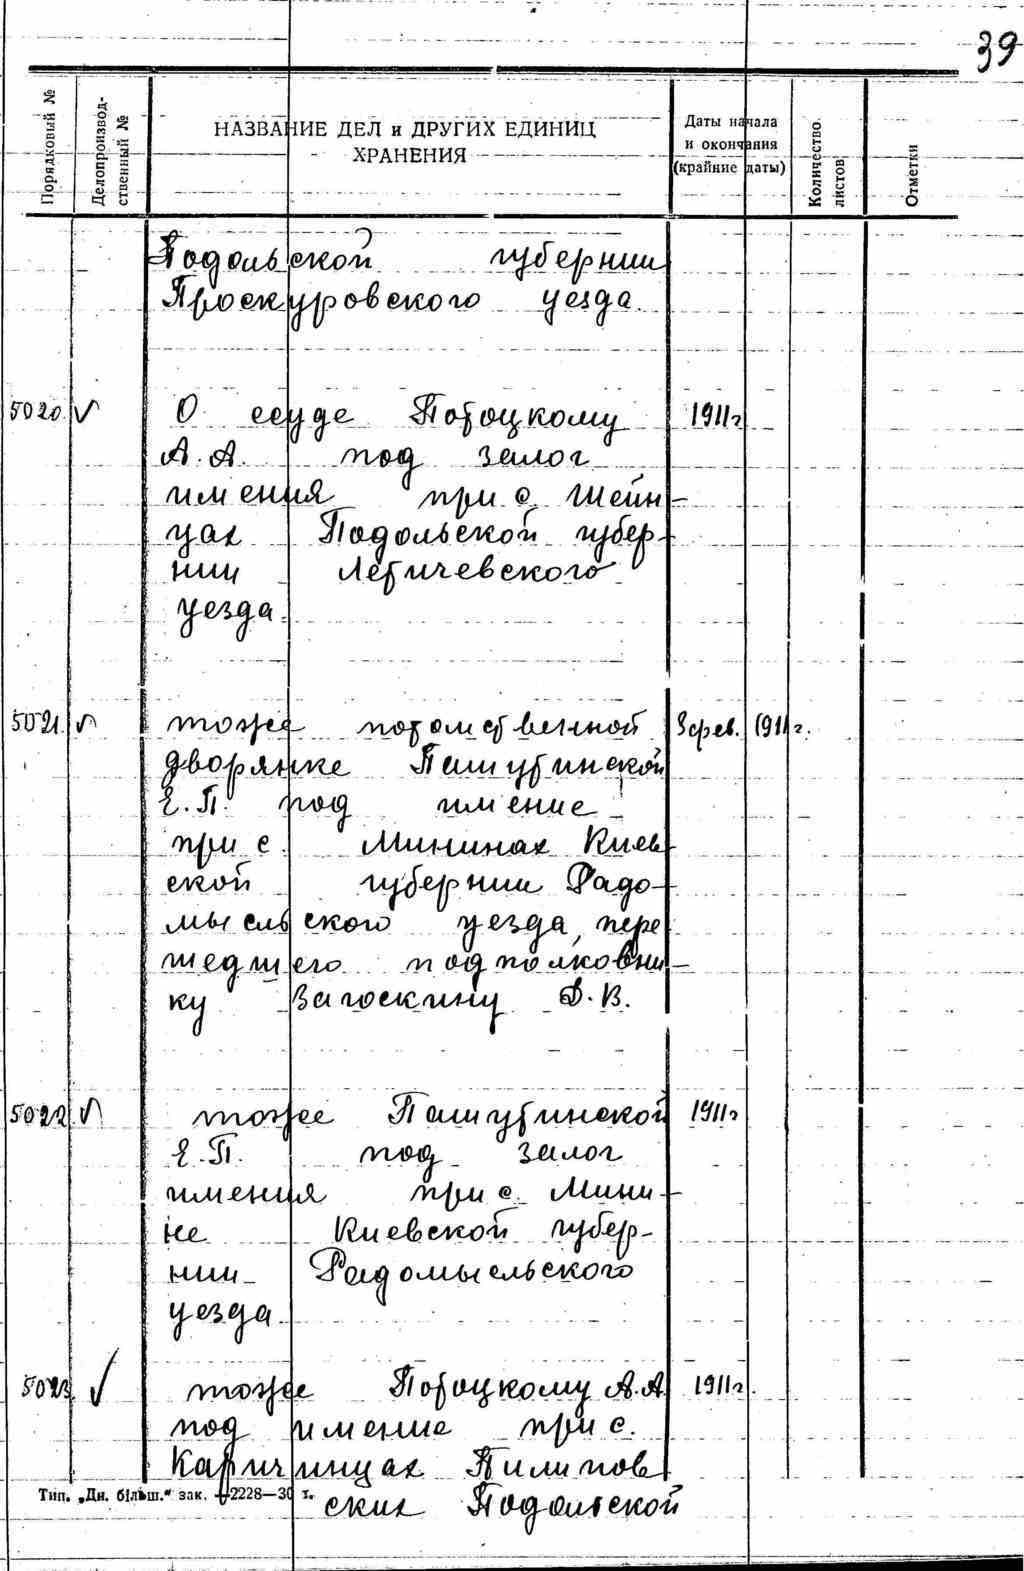 39
Порядковый №
Делопроизвод-
ственный №
НАЗВАНИЕ ДЕЛ и ДРУГИХ ЕДИНИЦ
ХРАНЕНИЯ
Даты начала
и окончания
(крайние даты)
Количество
листов
Отметки
Подольской губернии
Проскуровского уезда.
5020 √ О ссуде Потоцкому 1911г
А.А. под залог
имения при с. Шейн-
цах Подольской губер-
нии Летичевского
уезда.
5021 √ тоже потомственной 3 фев. 1911г.
дворянке Пашутинской
Е.П. под имение
при с. Мининах Киев
ской губернии Радо-
мысльского уезда, пере
шедшего подполковни-
ку Загоскину Д.В.
5022 √ тоже Пашутинской 1911г
Е.П. под залог
имения при с. Мини-
не Киевской губер-
нии Радомысельского
уезда
5023 √ тоже Потоцкому А.А. 1911г.
под имение при с.
Каричинцах Пилипов
ских Подольской
Тип. „Дн. більш." зак. 2228—30 г.